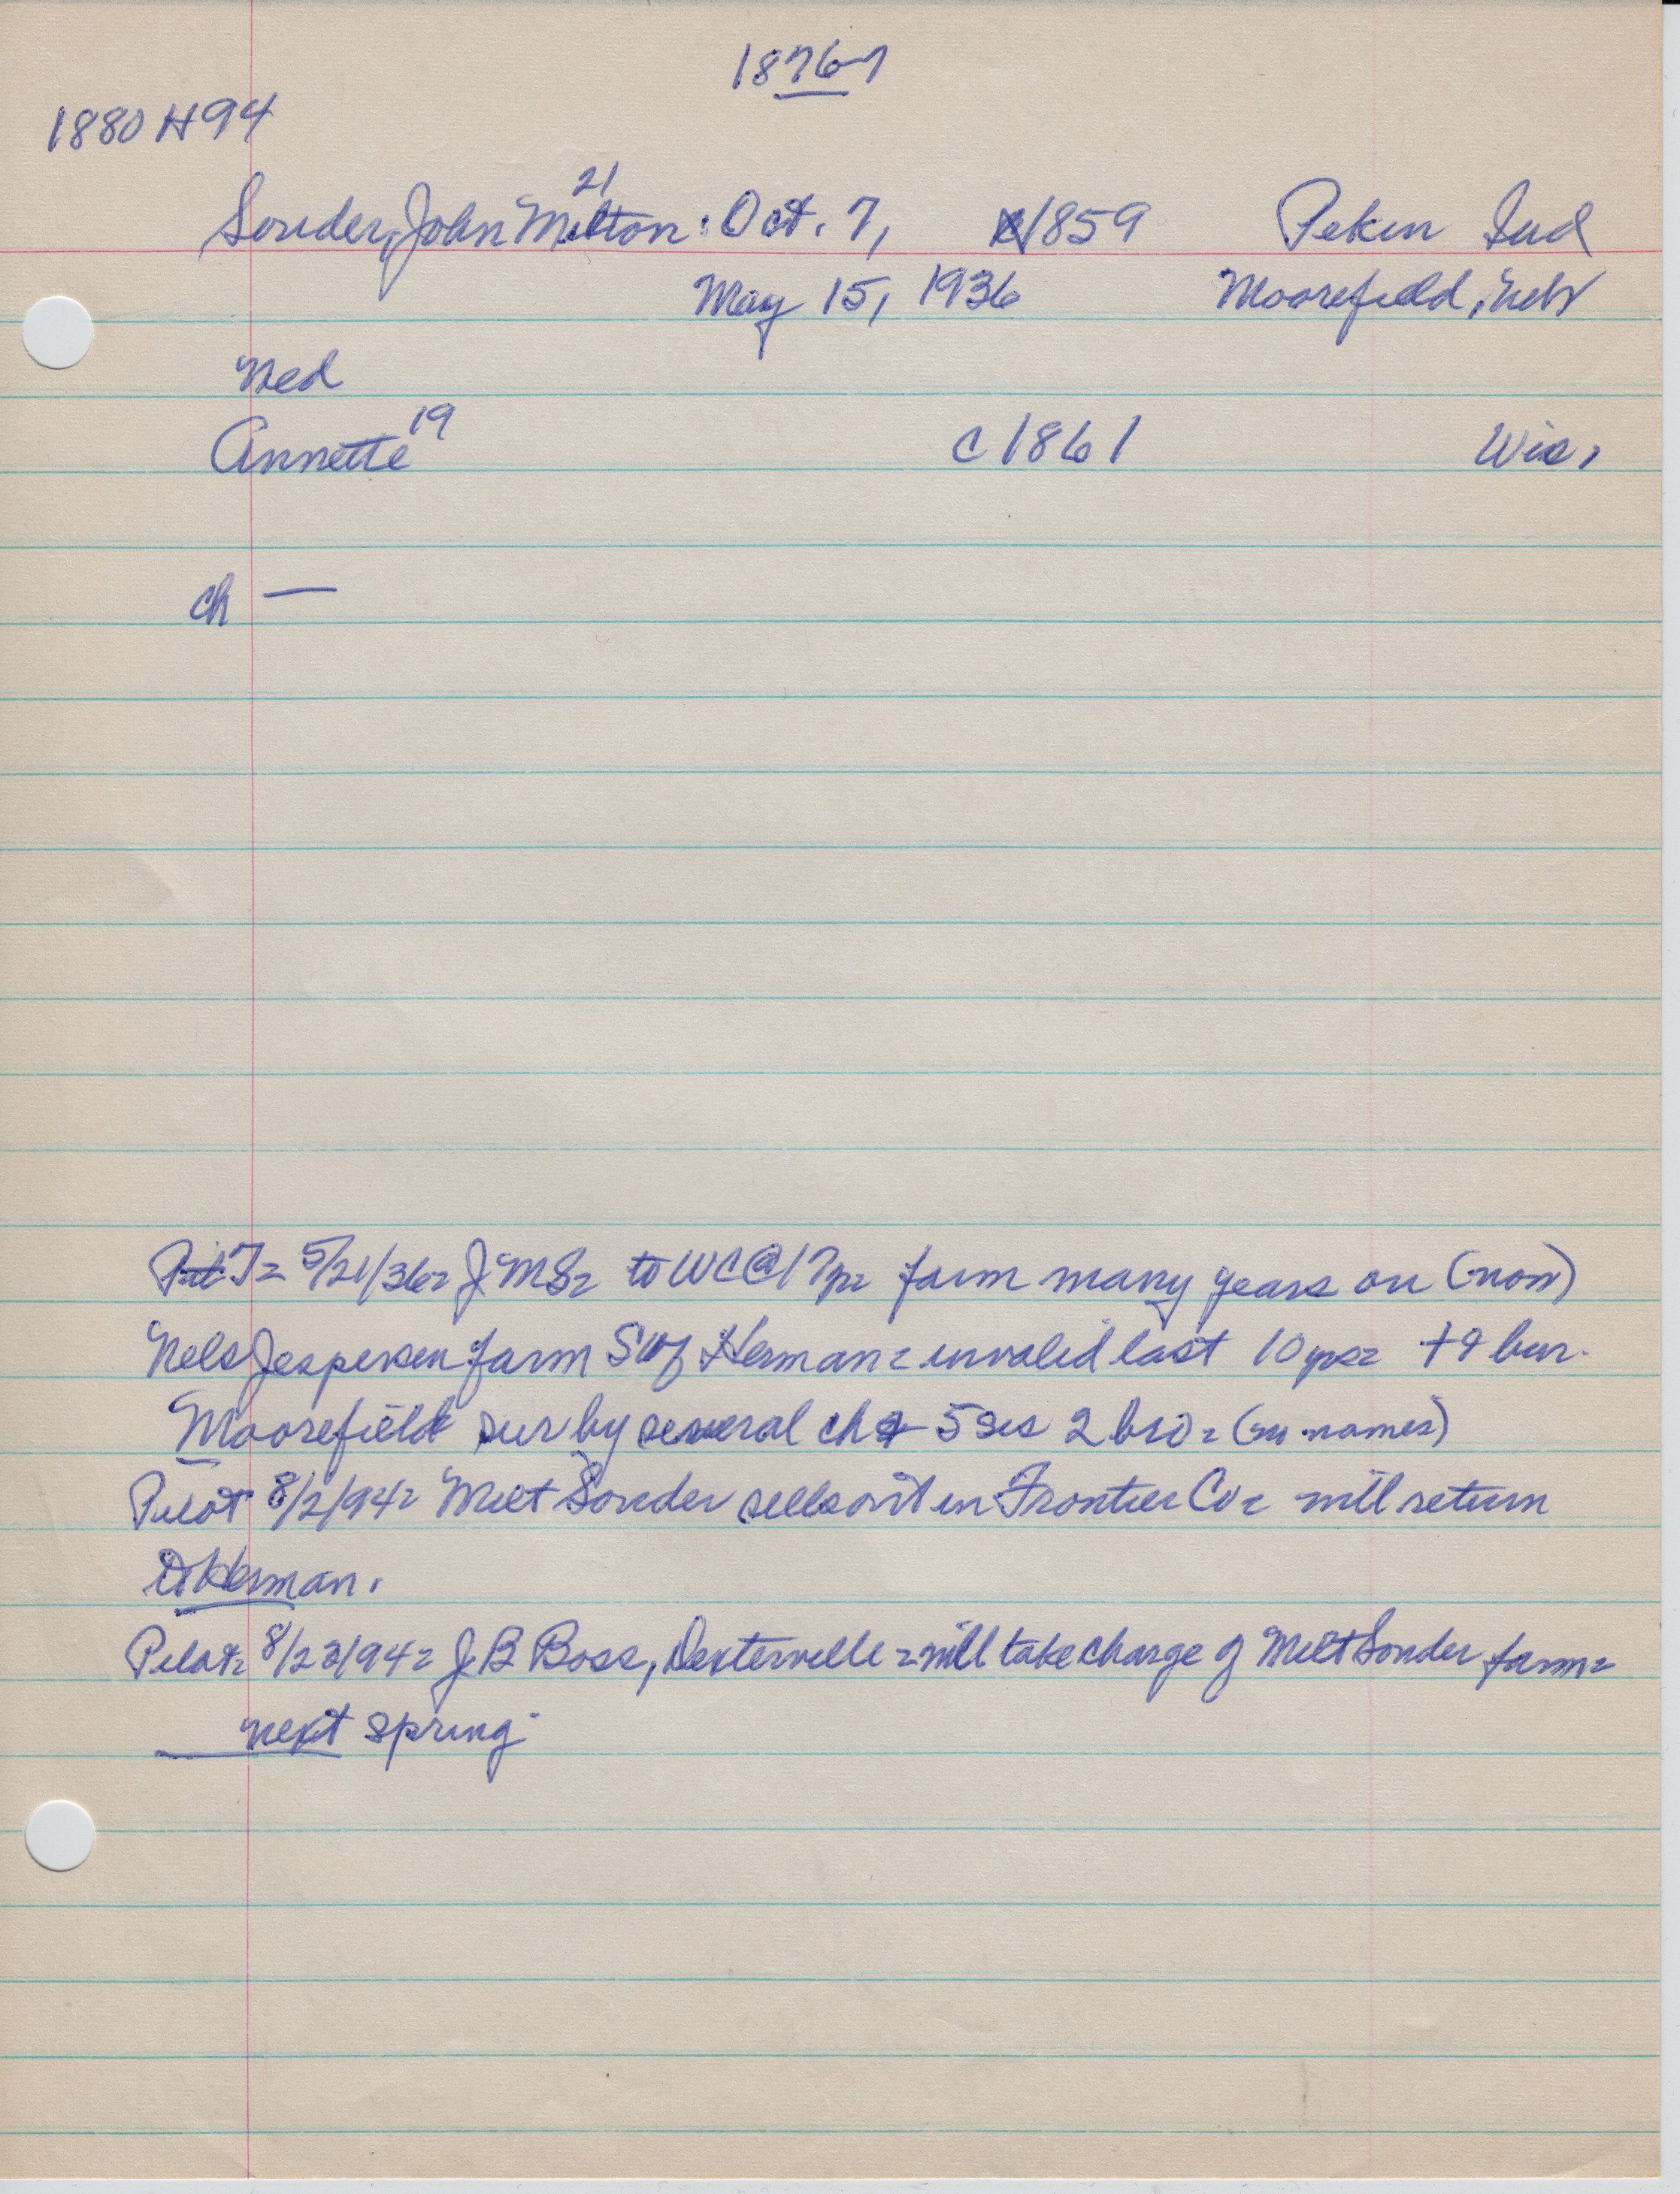 1876-7
1880 H94
21
Souder, John Milton: Oct. 7, 1859 Pekin Ind
May 15, 1936 Moorefield, Neb
Ned
19
Annette c1861 Wis.
ch —
T= 5/21/36= JMS= to WC@17yr= farm many years on (now)
Nels Jespersen farm SW of Herman= invalid last 10 yrs= + & bur.
Moorefield sur by several ch & 5 sis 2 bro= (no names)
Pilot 8/2/94= Milt Souder sells out in Frontier Co= will return
to Herman.
Pilot= 8/23/94= J B Boss, Dexterville= will take charge of Milt Souder farm=
next spring